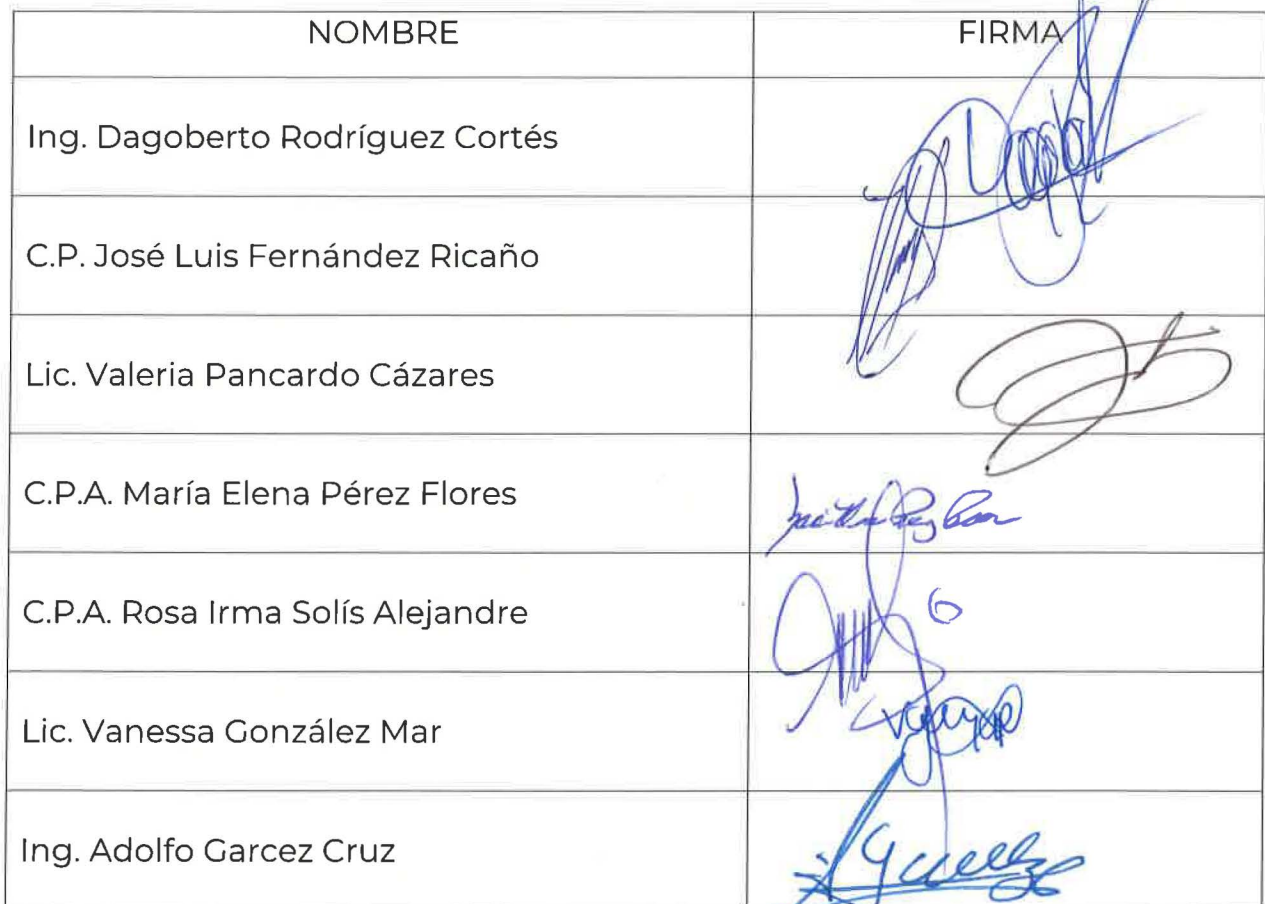 NOMBRE FIRMA
Ing. Dagoberto Rodríguez Cortés
C.P. José Luis Fernández Ricaño
Lic. Valeria Pancardo Cázares
C.P.A. María Elena Pérez Flores
C.P.A. Rosa Irma Solís Alejandre
Lic. Vanessa González Mar
Ing. Adolfo Garcez Cruz